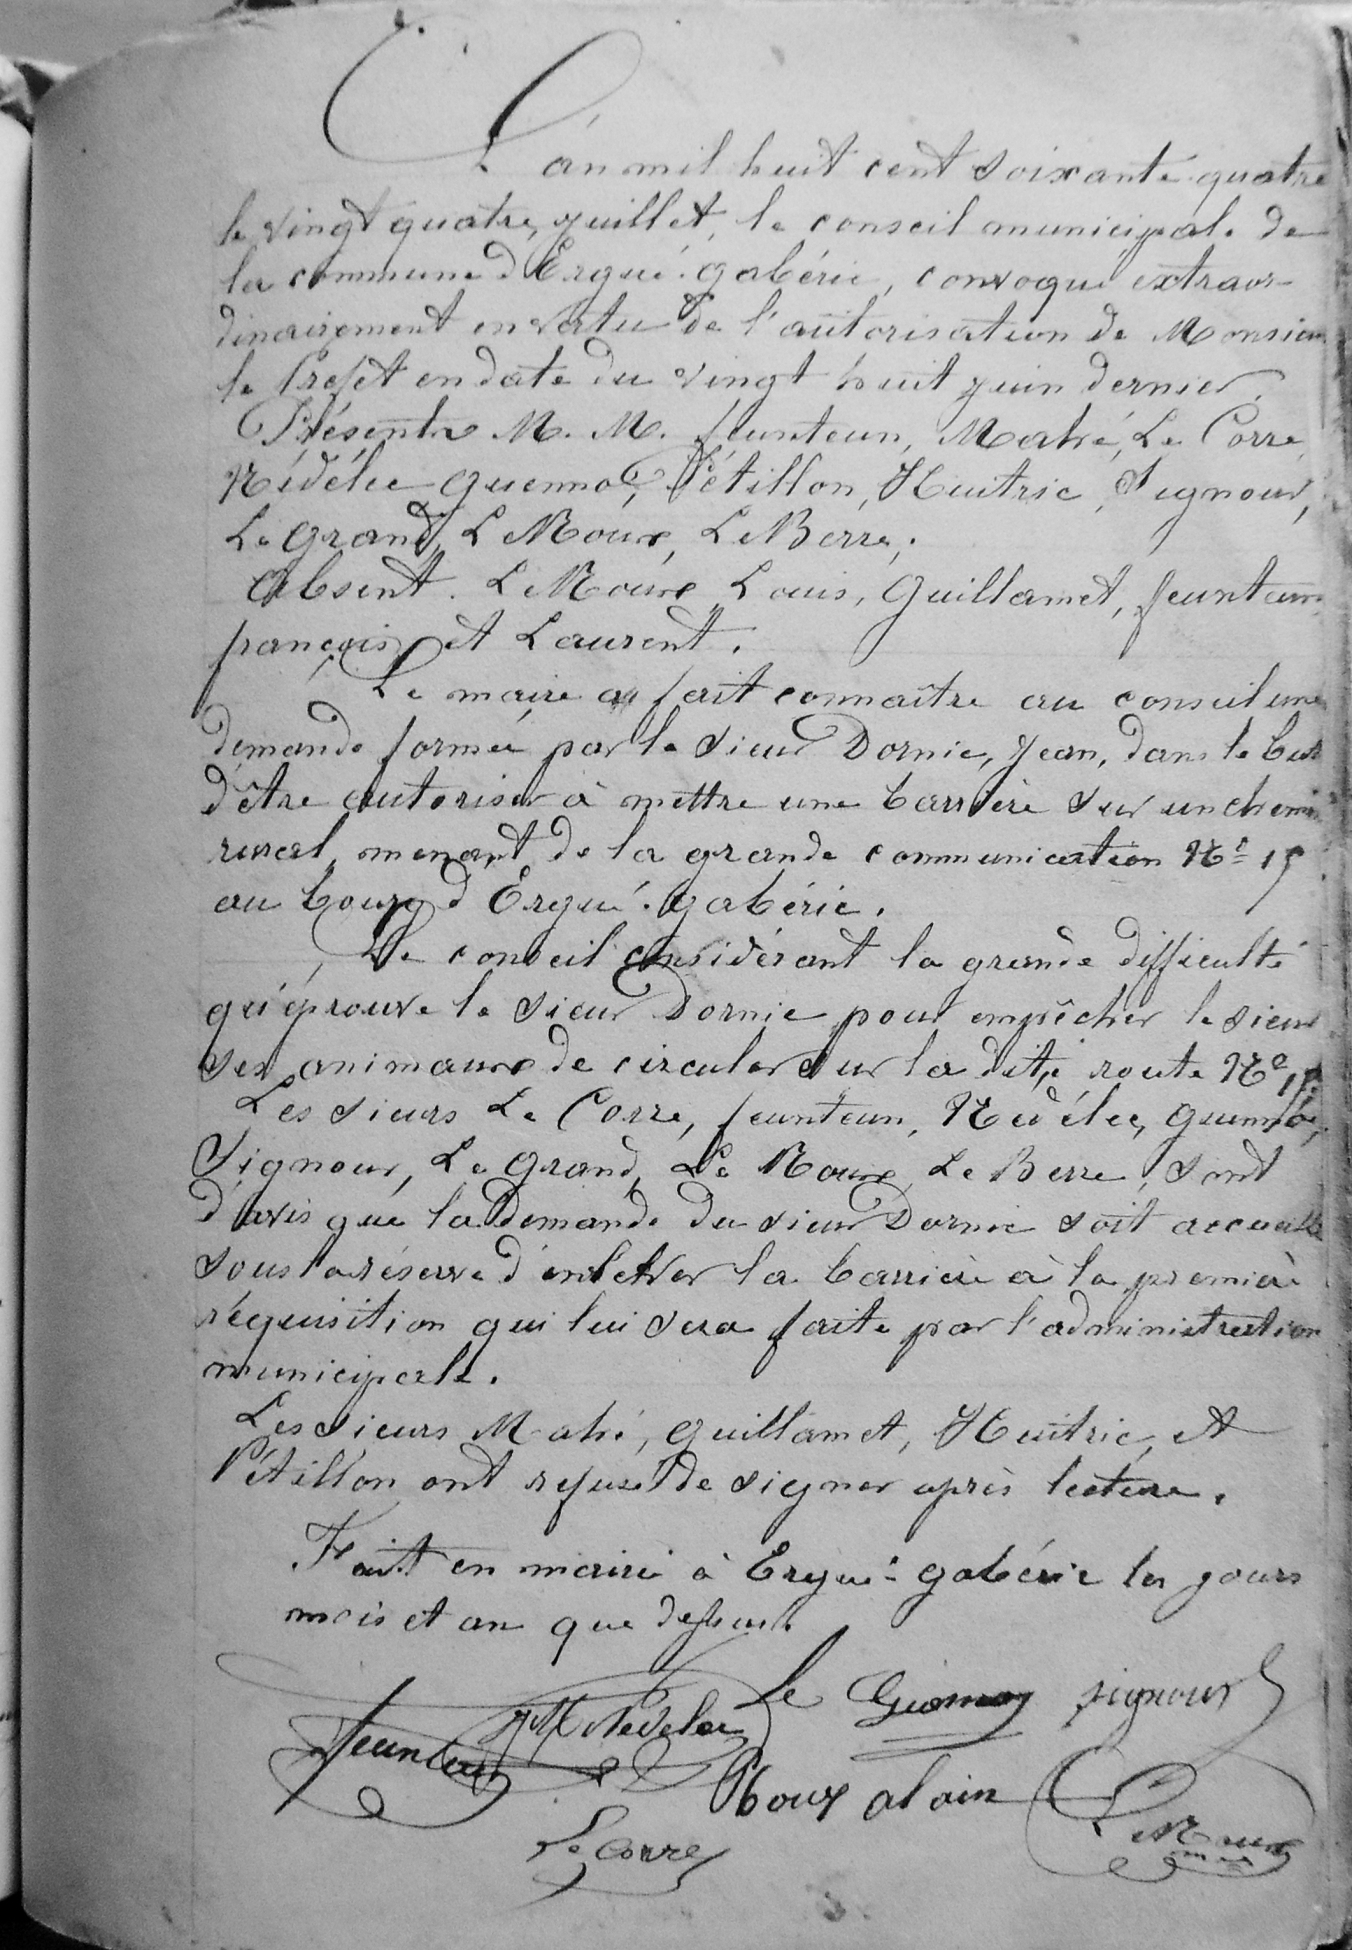 L'an mil huit cent soixante quatre
le vingt quatre juillet, le conseil municipale de
la commune d'Ergué-gabéric, convoqué extraor-
dinairement en vertu de l'autorisation de Monsieur
le Prefet en date du vingt huit juin dernier.
Présents M. M. feunteun, Mahé, Le Corre,
Nédélec Guennoc, Pétillon, Huitric, Signour,
Le Grand, Le Roux, Le Berre,.
Absent. Le Roux Louis, Guillamet, feunteun
françois et Laurent.
Le maire a fait connaître au conseil une
demande formée par le sieur Dornic, Jean, dans le but
d'être autoriser à mettre une barrière sur un chemin
rural menant de la grande communication No 15
au bourg d'Ergué-gabéric.
Le conseil considérant la grande difficulté
qu'éprouve le sieur Dornic pour empêcher le sieur
ses animaux de circuler sur la dite route No 15.
Les sieurs Le Corre, feunteun, Nédélec, Guennoc,
Signour, Le Grand, Le Roux, Le Berre, sont
d'avis que la demande du sieur Dornic soit accueillie
sous la réserve d'enlever la barrière à la première
réquisition qui lui sera faite par l'administration
municipale.
Les sieurs Mahé, Guillamet, Huitric, et
Pétillon ont refusé de signer après lecture.
Fait en mairie à Ergué-gabéric les jours
mois et an que dessus.
Le Guennoc Signour
feunteun JM Nédelec
Roux alain Le Roux
Le Corre